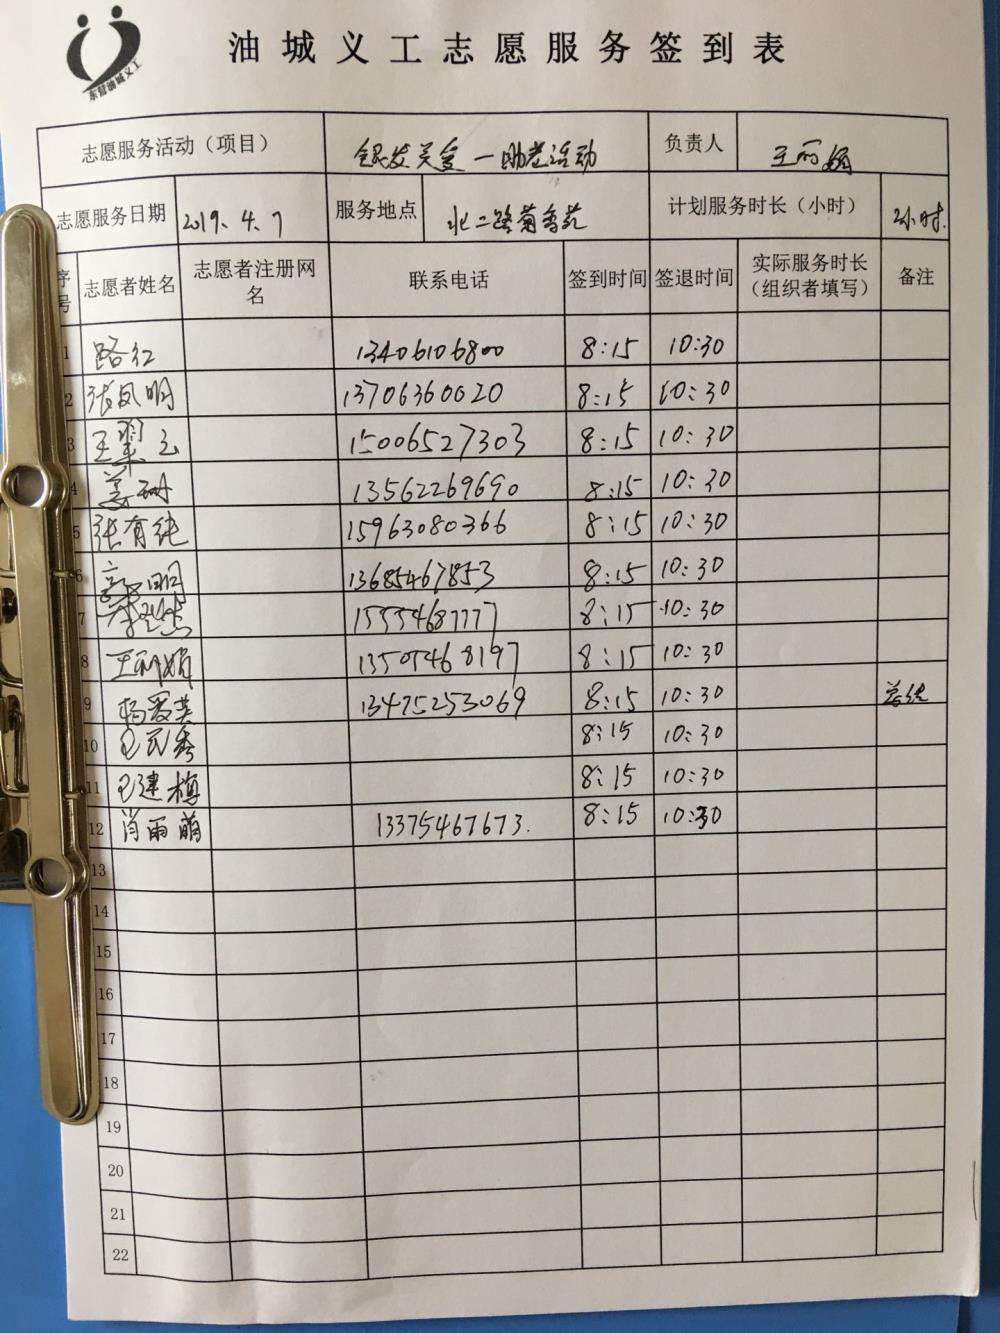 东营油城义工
油城义工志愿服务签到表
志愿服务活动（项目） 银发关爱一助老活动 负责人 王丽娟
志愿服务日期 2019.4.7 服务地点 北二路菊香苑 计划服务时长（小时） 2小时.
序号 志愿者姓名 志愿者注册网名 联系电话 签到时间 签退时间 实际服务时长（组织者填写） 备注
1 路红 13406106800 8:15 10:30
2 张凤明 13706360020 8:15 10:30
3 王翠云 15006527303 8:15 10:30
4 姜珊 13562269690 8:15 10:30
5 张有纯 15963080366 8:15 10:30
6 明 13685467853 8:15 10:30
7 李 15554687777 8:15 10:30
8 王丽娟 13505468197 8:15 10:30
9 杨爱英 13475253069 8:15 10:30 总结
10 王民秀 8:15 10:30
11 王建梅 8:15 10:30
12 肖雨萌 13375467673. 8:15 10:30
13
14
15
16
17
18
19
20
21
22